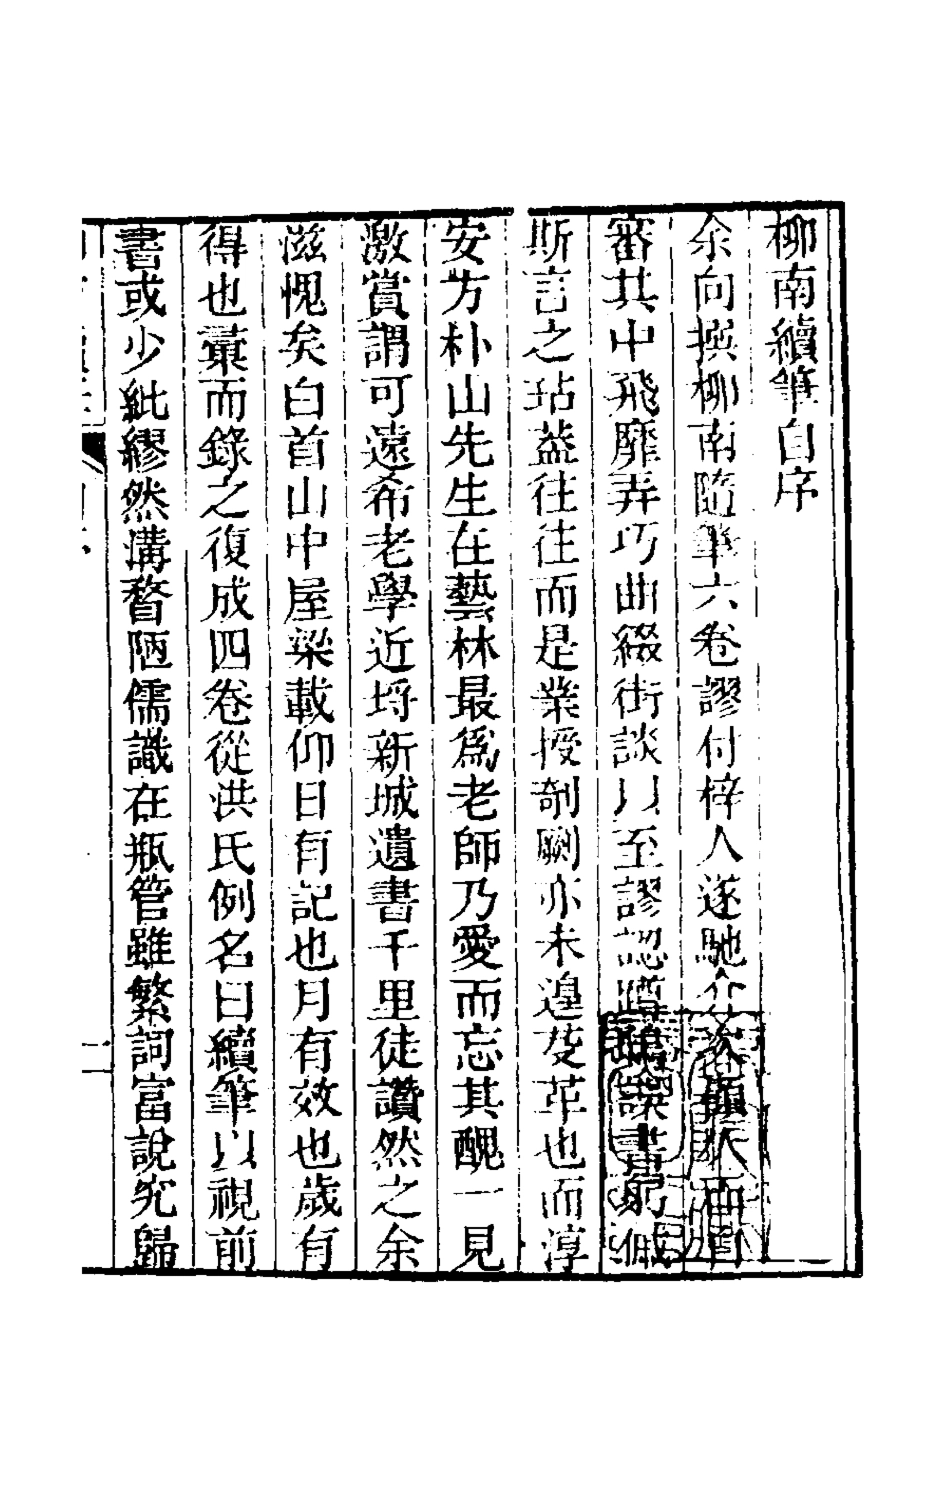 柳南續筆自序
余向撰柳南隨筆六卷謬付梓人遂馳介
審其中飛靡弄巧曲綴街談以至謬認蹲鴟誤書
斯言之玷蓋往往而是業授剞劂亦未遑芟革也而淳
安方朴山先生在藝林最爲老師乃愛而忘其醜一見
激賞謂可遠希老學近埒新城遺書千里徒讚然之余
滋愧矣白首山中屋梁載仰日有記也月有效也歲有
得也彙而錄之復成四卷從洪氏例名曰續筆以視前
書或少紕繆然溝瞀陋儒識在瓶管雖繁詞富說究歸